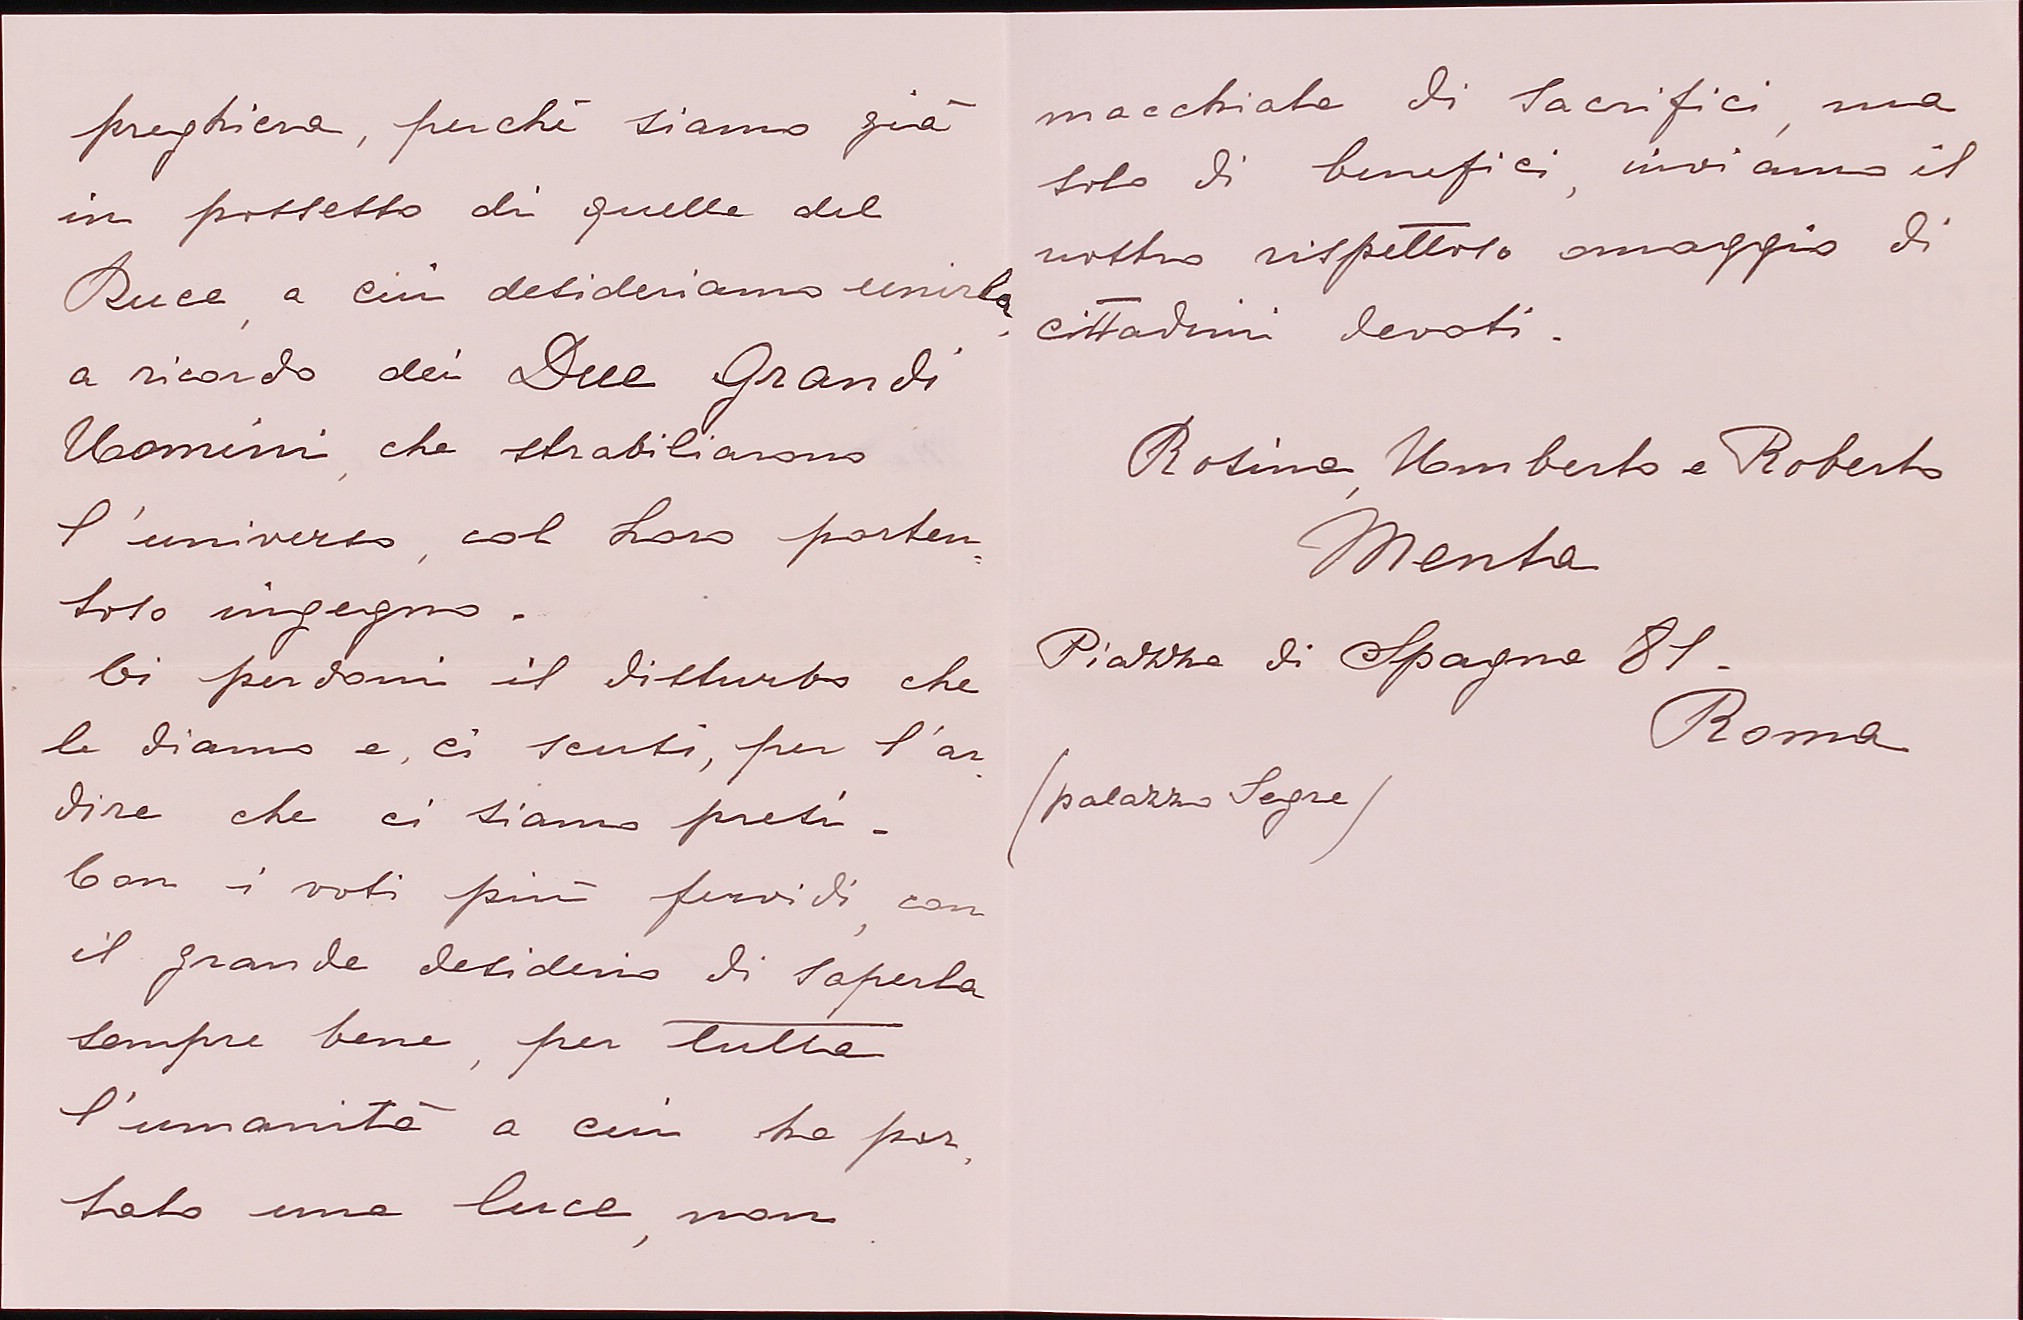 preghiera, perchè siamo già
in possesso di quella del
Duce, a cui desideriamo unirla,
a ricordo dei Due Grandi
Uomini, che strabiliarono
l'universo, col Loro porten-
toso ingegno.
Ci perdoni il disturbo che
le diamo e, ci scusi, per l'ar-
dire che ci siamo presi.
Con i voti più fervidi, con
il grande desiderio di saperla
sempre bene, per tutta
l'umanità a cui ha por-
tato una luce, non
macchiata di sacrifici, ma
solo di benefici, inviamo il
nostro rispettoso omaggio di
cittadini devoti.
Rosina, Umberto e Roberto
Menta
Piazza di Spagna 81.
Roma
(palazzo Segre)